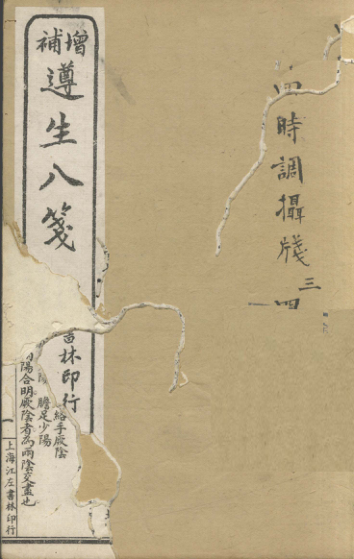 時調攝牋
三四
一
增補
遵生八箋
書林印行
絡手厥陰
膽足少陽
陽合明厥陰者為兩陰交盡也
上海江左書林印行